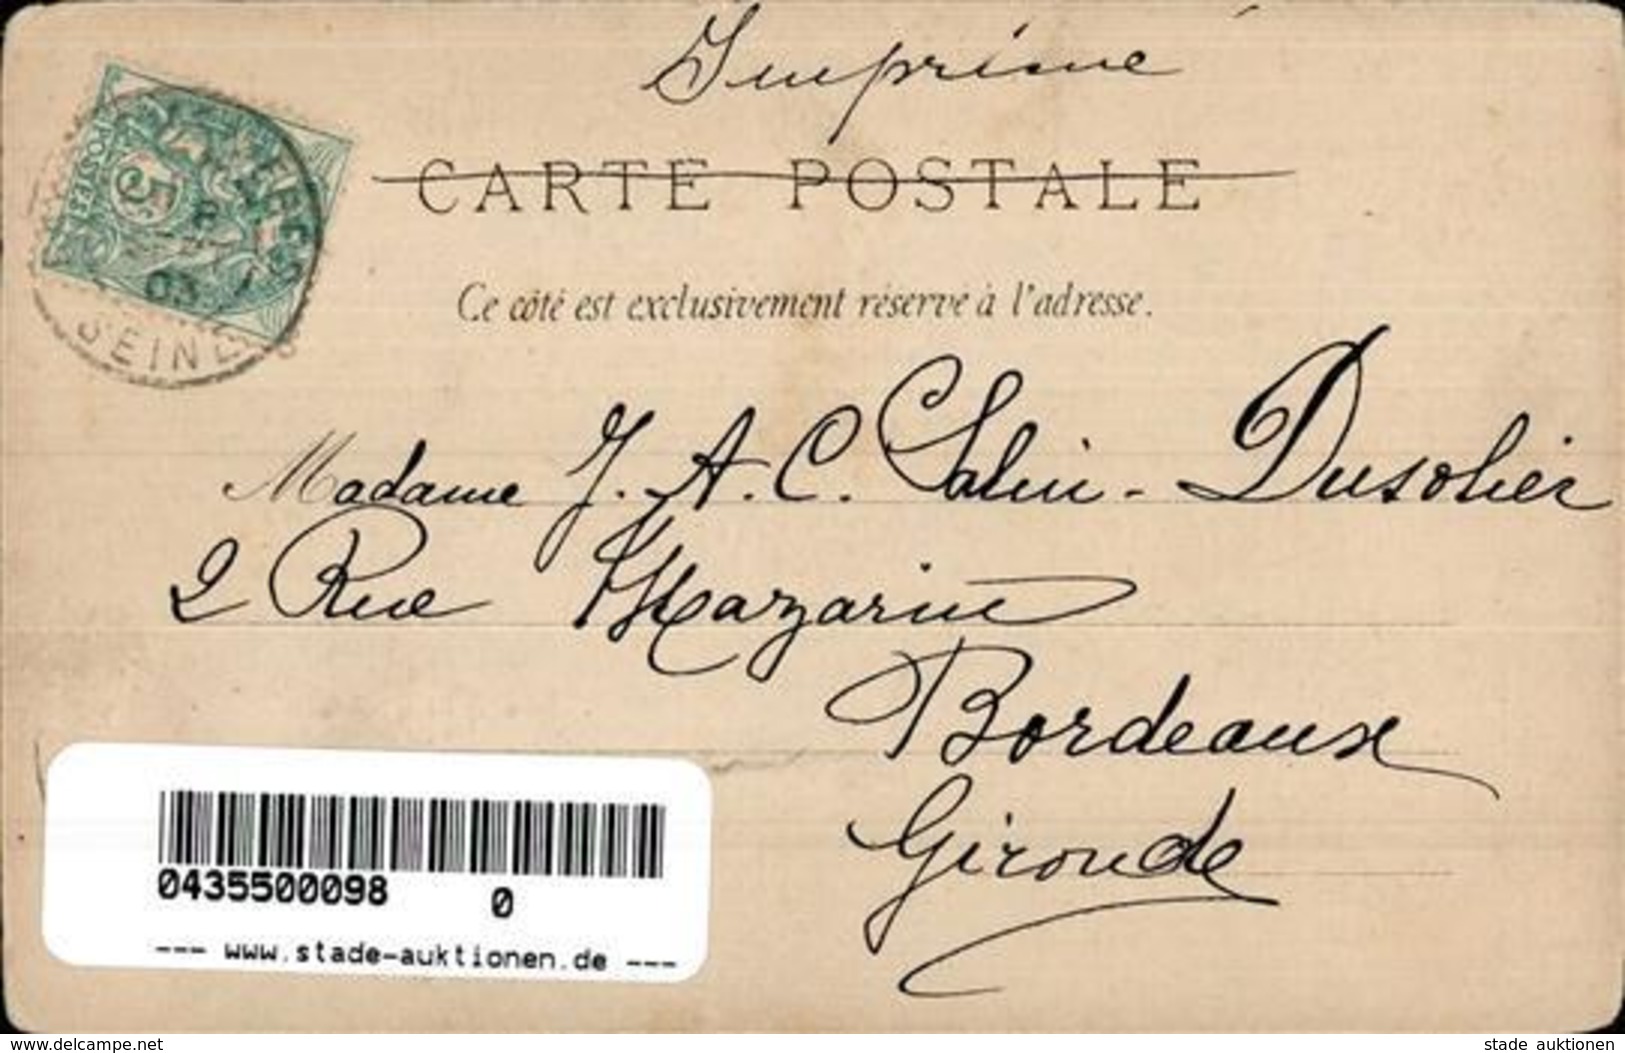 Imprimé
CARTE POSTALE
Ce côté est exclusivement réservé à l'adresse.
POSTES
5
03
SEINE
Madame J. A. C. Salin - Dusolier
2 Rue Mazarin
Bordeaux
Gironde
0435500098 0
--- www.stade-auktionen.de ---
www.delcampe.net
stade auktionen